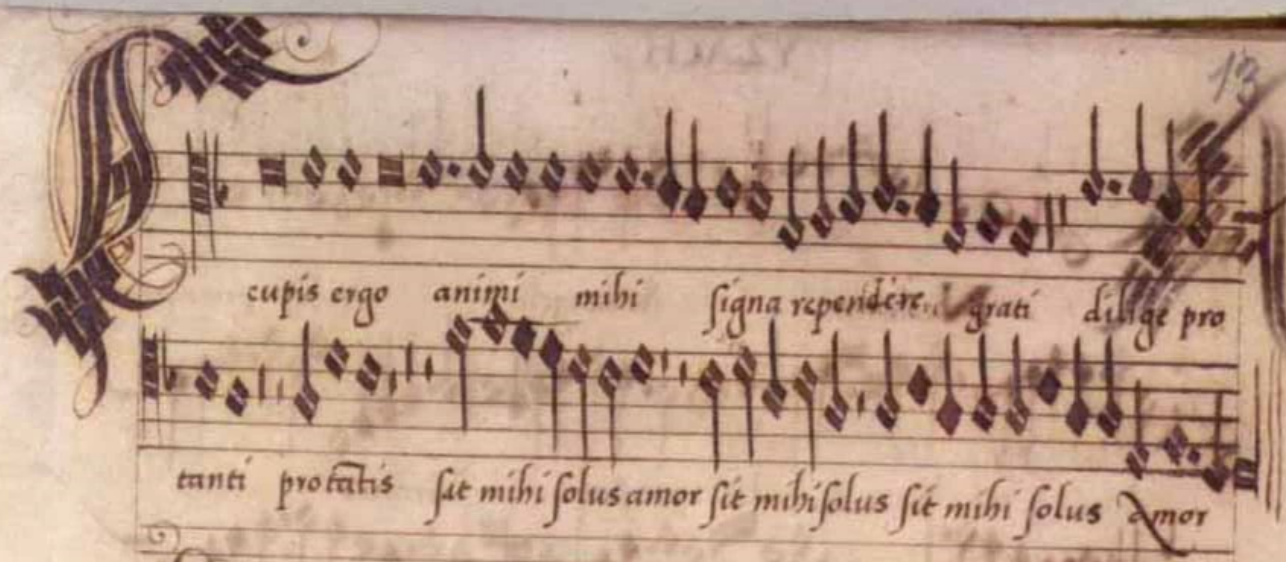 13
cupis ergo animi mihi signa rependere grati dilige pro
tanti pro tātis sit mihi solus amor sit mihi solus sit mihi solus amor